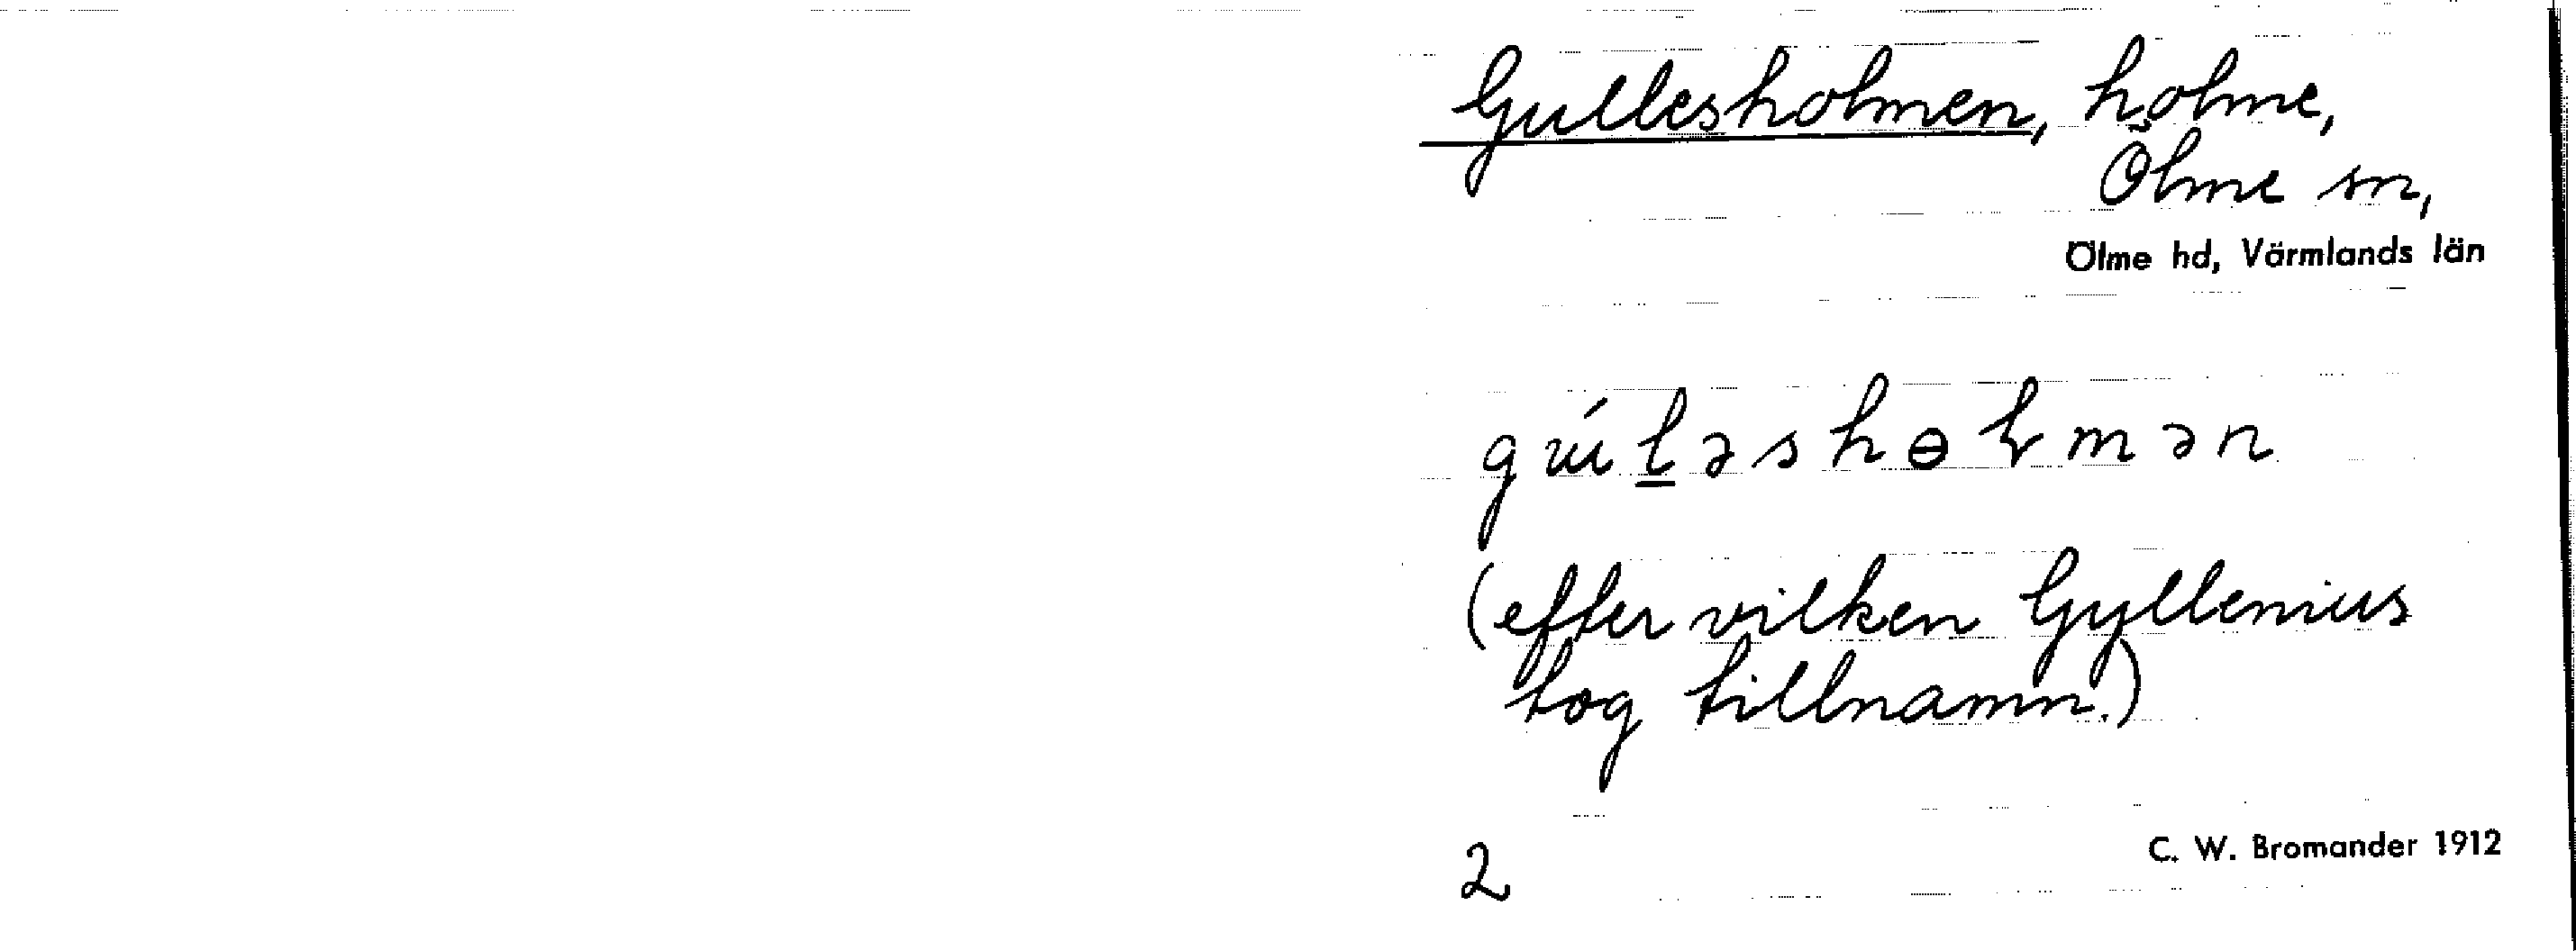 Gullesholmen, holme,
Ölme sn,
Ölme hd, Värmlands län
gɯ́l̲əshɵɫmən
(efter vilken Gyllenius
tog tillnamn.)
2
C. W. Bromander 1912